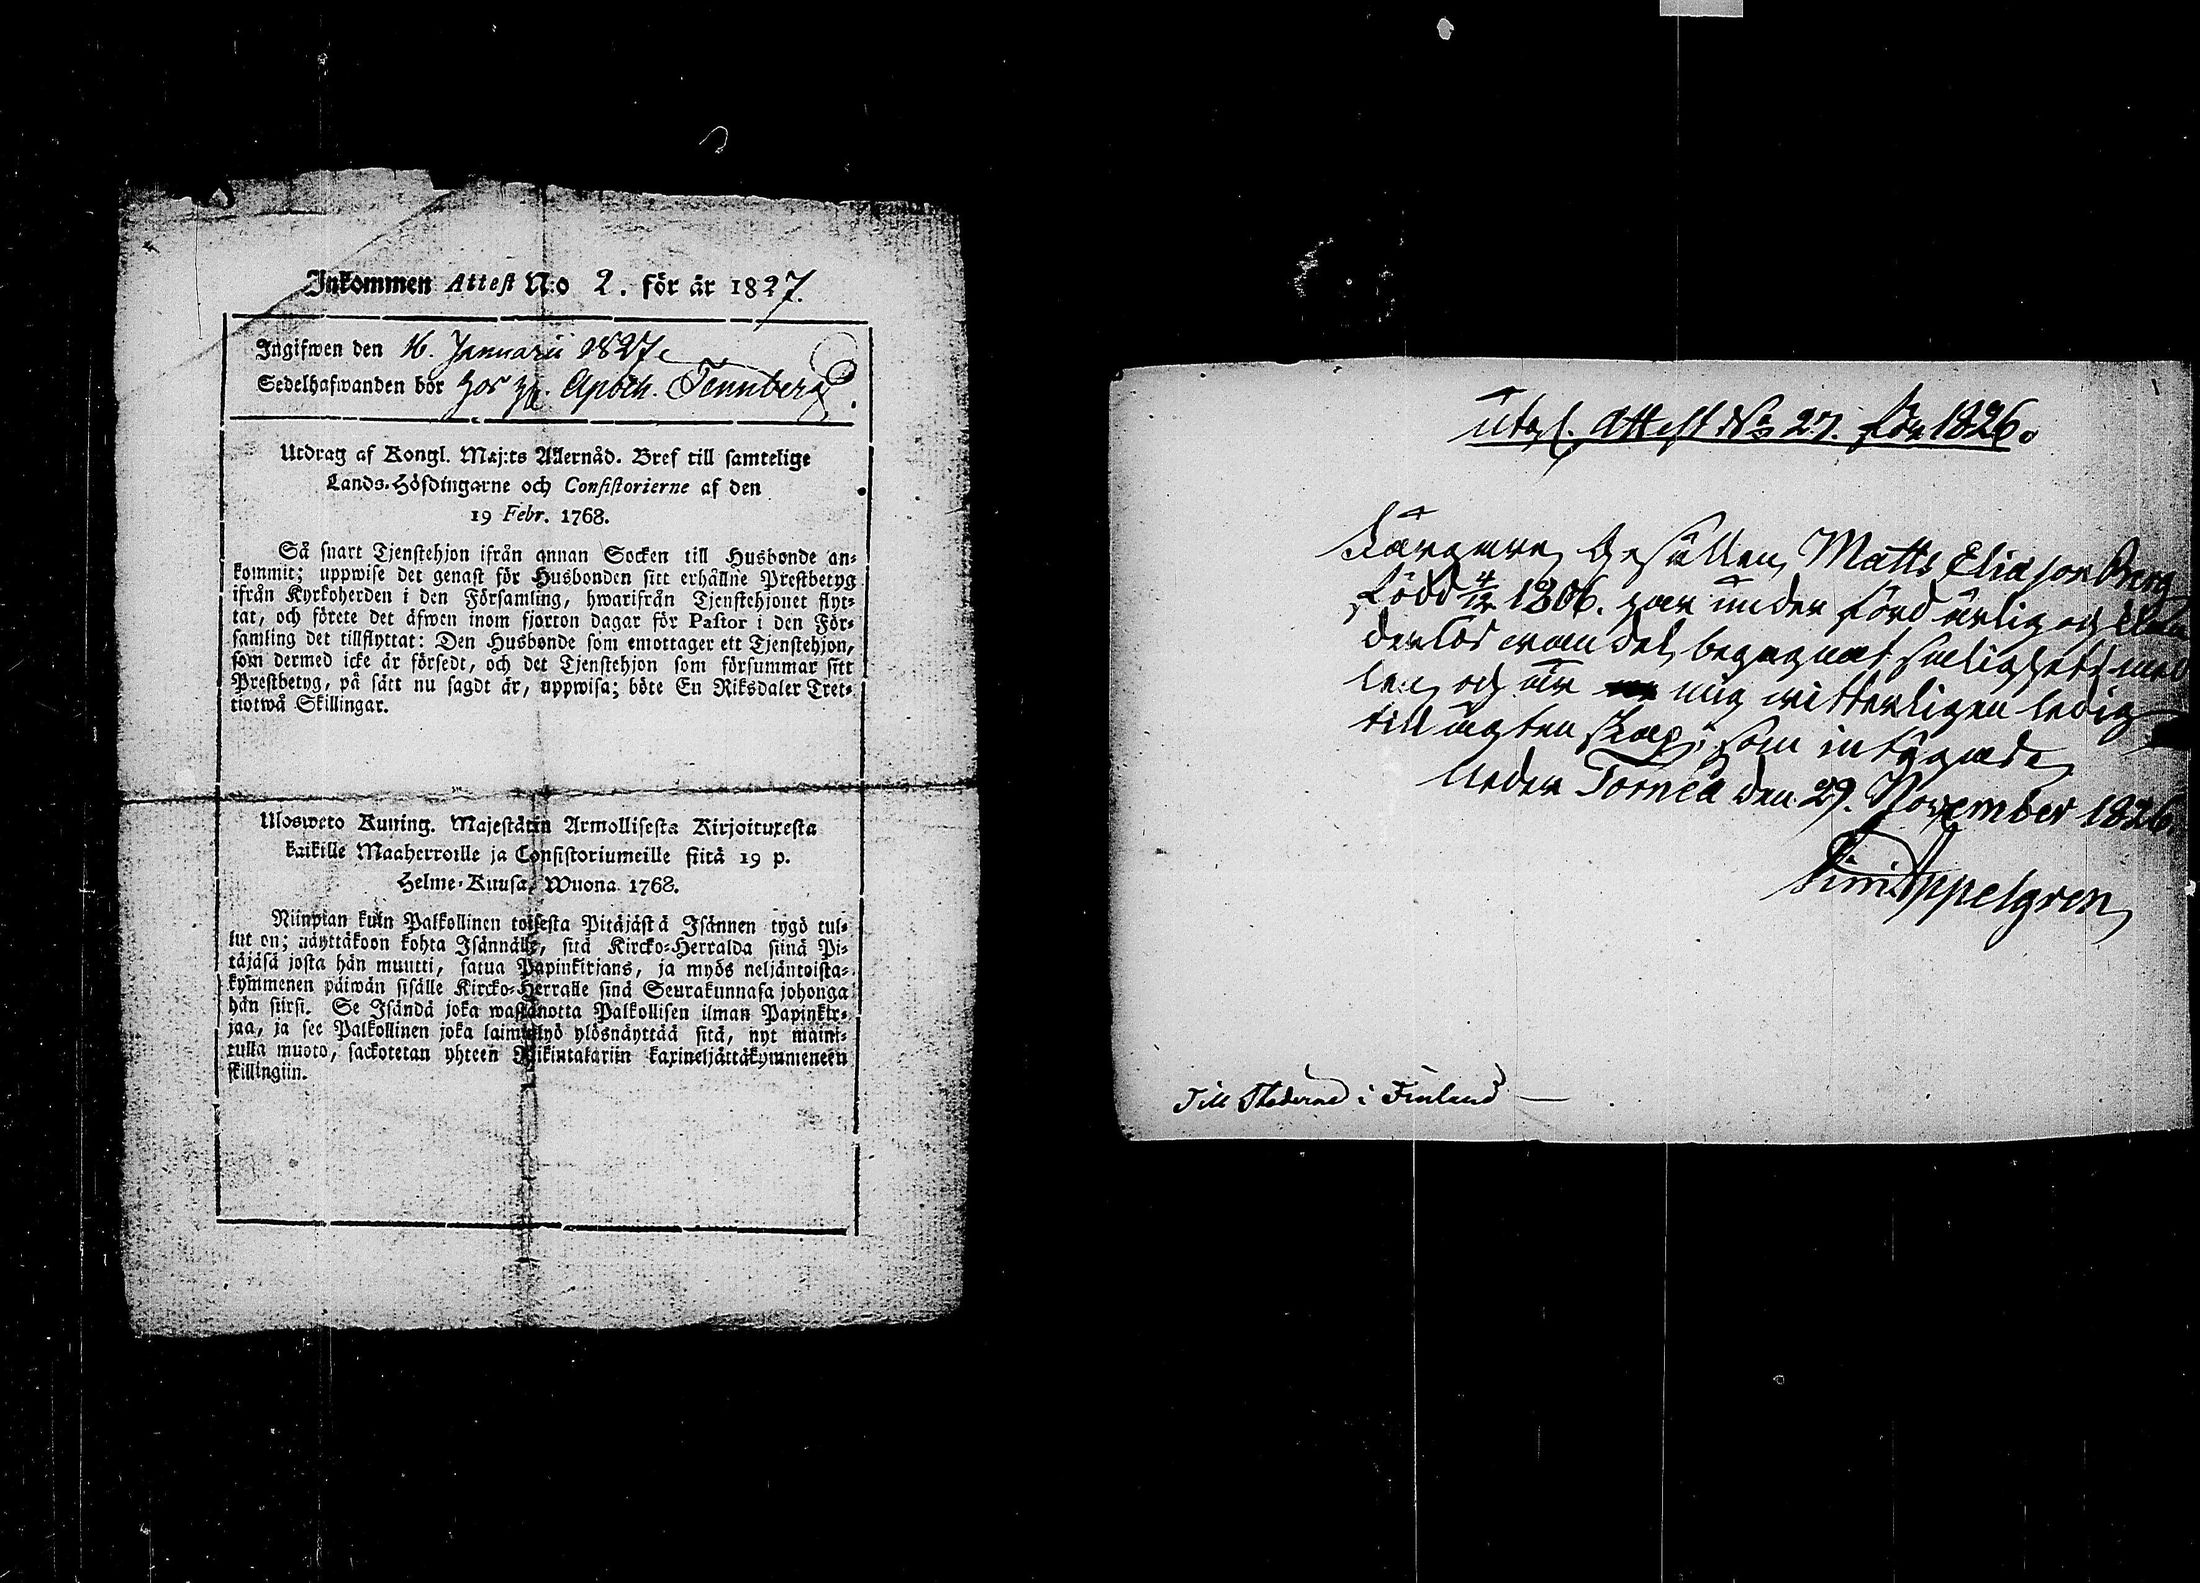 Inkommen Attest N:o 2. för år 1827.
Ingifwen den 16. Januarii 1827.
Sedelhafwanden bor hos Hr. Apoth. Tennberg.
Utdrag af Kongl. Maj:ts Allernåd. Bref till samtelige
Lands-Höfdingarne och Consistorierne af den
19 Febr. 1768.
Så snart Tjenstehjon ifrån annan Socken till Husbonde an-
kommit; uppwise det genast för Husbonden sitt erhållne Prestbetyg
ifrån Kyrkoherden i den Församling, hwarifrån Tjenstehjonet flyt-
tat, och förete det äfwen inom fjorton dagar för Pastor i den För-
samling det tillflyttat: Den Husbonde som emottager ett Tjenstehjon,
som dermed icke är försedt, och det Tjenstehjon som försummar sitt
Prestbetyg, på sätt nu sagdt är, uppwisa; böte En Riksdaler Tret-
tiotwå Skillingar.
Ulosweto Kuning. Majestätin Armollisesta Kirjoituxesta
kaikille Maaherroille ja Consistoriumeille siitä 19 p.
Helme-Kuusa, Wuona 1768.
Niinpian kuin Palkollinen toisesta Pitäjästä Isännen tygö tul-
lut on; näyttäkoon kohta Isännälle, sitä Kircko-Herralda siinä Pi-
täjäsä josta hän muutti, satua Papinkirjans, ja myös neljäntoista-
kymmenen päiwän sisälle Kircko-Herralle sinä Seurakunnasa johonga
hän siirsi. Se Isändä joka wastanotta Palkollisen ilman Papinkir-
jaa, ja see Palkollinen joka laiminlyö ylösnäyttää sitä, nyt maini-
tulla muoto, sackotetan yhteen Rikintalariin kaxineljättäkymmeneen
skillingiin.
Utgf. Attest No 27. för 1826.
Garfvare Gesällen, Matts Eliasson Berg
född 4/12 1806. har under förd ärlig och
derlös vandel, begagnat salighets med
len, och är mig vitterligen ledig
till ägtenskap; som intygade,
Neder Torneå den 29. November 1826.
Appelgren
Till Städerne i Finland